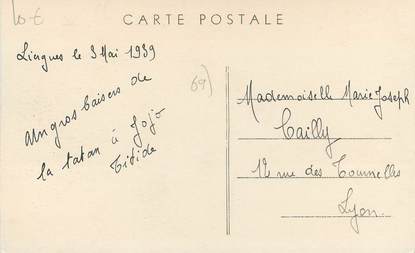 10 €
CARTE POSTALE
Liergues le 3 Mai 1939
un gros baisers de
la tatan à Jojo
Titide
69)
Mademoiselle Marie Joseph
Cailly
12 rue des Tournelles
Lyon.